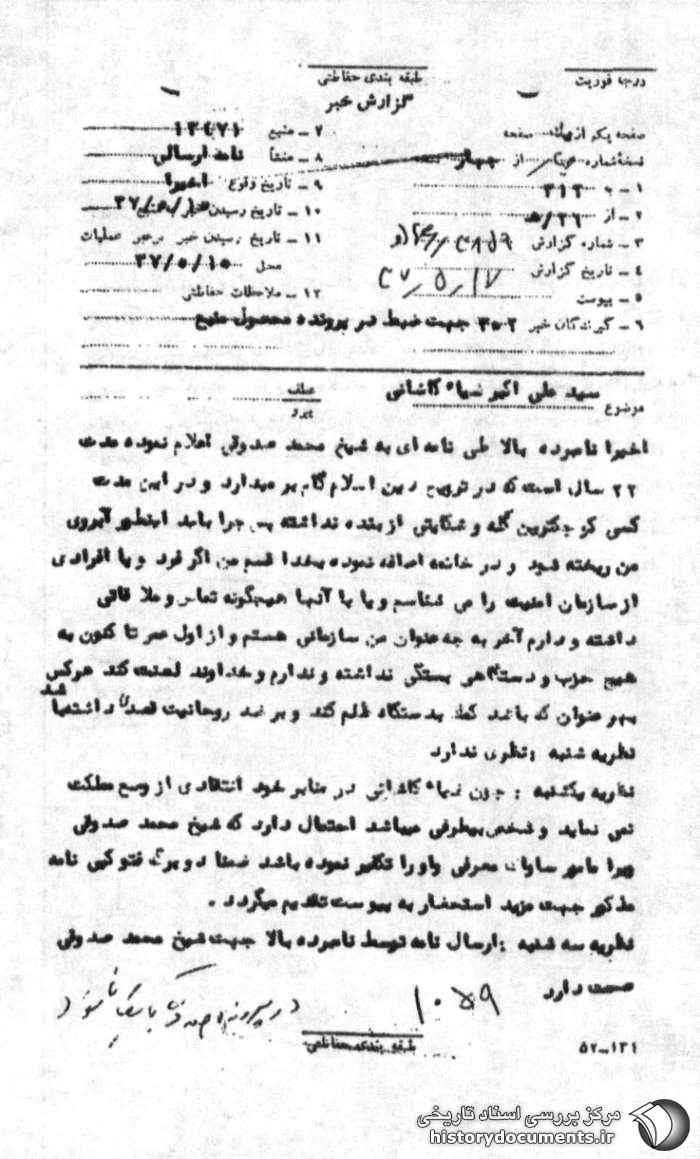 درجه فوریت
طبقه بندی حفاظتی
گزارش خبر
صفحه یکم از یک صفحه
نسخه شماره از چهار
۱ - به ۳۱۲
۲ - از ۲۶/هـ
۳ - شماره گزارش
۴ - تاریخ گزارش ۳۷٫۵٫۱۷
۵ - پیوست
۶ - گیرندگان خبر ۳۰۲ جهت ضبط در پرونده محصول منبع
۷ - منبع ۱۳۴۷۱
۸ - منشأ نامه ارسالی
۹ - تاریخ وقوع اخیرا
۱۰ - تاریخ رسیدن خبر به منبع
۱۱ - تاریخ رسیدن خبر برهبر عملیات
محل ۳۷/۵/۱۰
۱۲ - ملاحظات حفاظتی
موضوع سید علی اکبر ضیاء کاشانی
عطف
پیرو
اخیرا نامبرده بالا طی نامه ای به شیخ محمد صدوقی اعلام نموده مدت
۲۲ سال است که در ترویج دین اسلام گام بر میدارد و در این مدت
کسی کوچکترین گله و شکایتی از بنده نداشته پس چرا باید اینطور آبروی
من ریخته شود و در خاتمه اضافه نموده بخدا قسم من اگر فرد و یا افرادی
از سازمان امنیت را می شناسم و یا با آنها هیچگونه تماس و ملاقاتی
داشته و دارم آخر به چه عنوان من سازمانی هستم و از اول عمر تا کنون به
هیچ حزب و دستگاهی بستگی نداشته و ندارم و خداوند لعنت کند هرکس
بهر عنوان که باشد کمک بدستگاه ظلم کند و بر ضد روحانیت قصدی داشته باشد
نظریه شنبه : نظری ندارد
نظریه یکشنبه : چون ضیاء کاشانی در منابر خود انتقادی از وضع مملکت
نمی نماید و شخص بیطرفی میباشد احتمال دارد که شیخ محمد صدوقی
ویرا مامور ساواک معرفی و او را تکفیر نموده باشد ضمنا دو برگ فتوکپی نامه
مذکور جهت مزید استحضار به پیوست تقدیم میگردد .
نظریه سه شنبه : ارسال نامه توسط نامبرده بالا جهت شیخ محمد صدوقی
صحت دارد
۱۰۵۹
طبقه بندی حفاظتی
۵۲-۱۳۱
مرکز بررسی اسناد تاریخی
historydocuments.ir